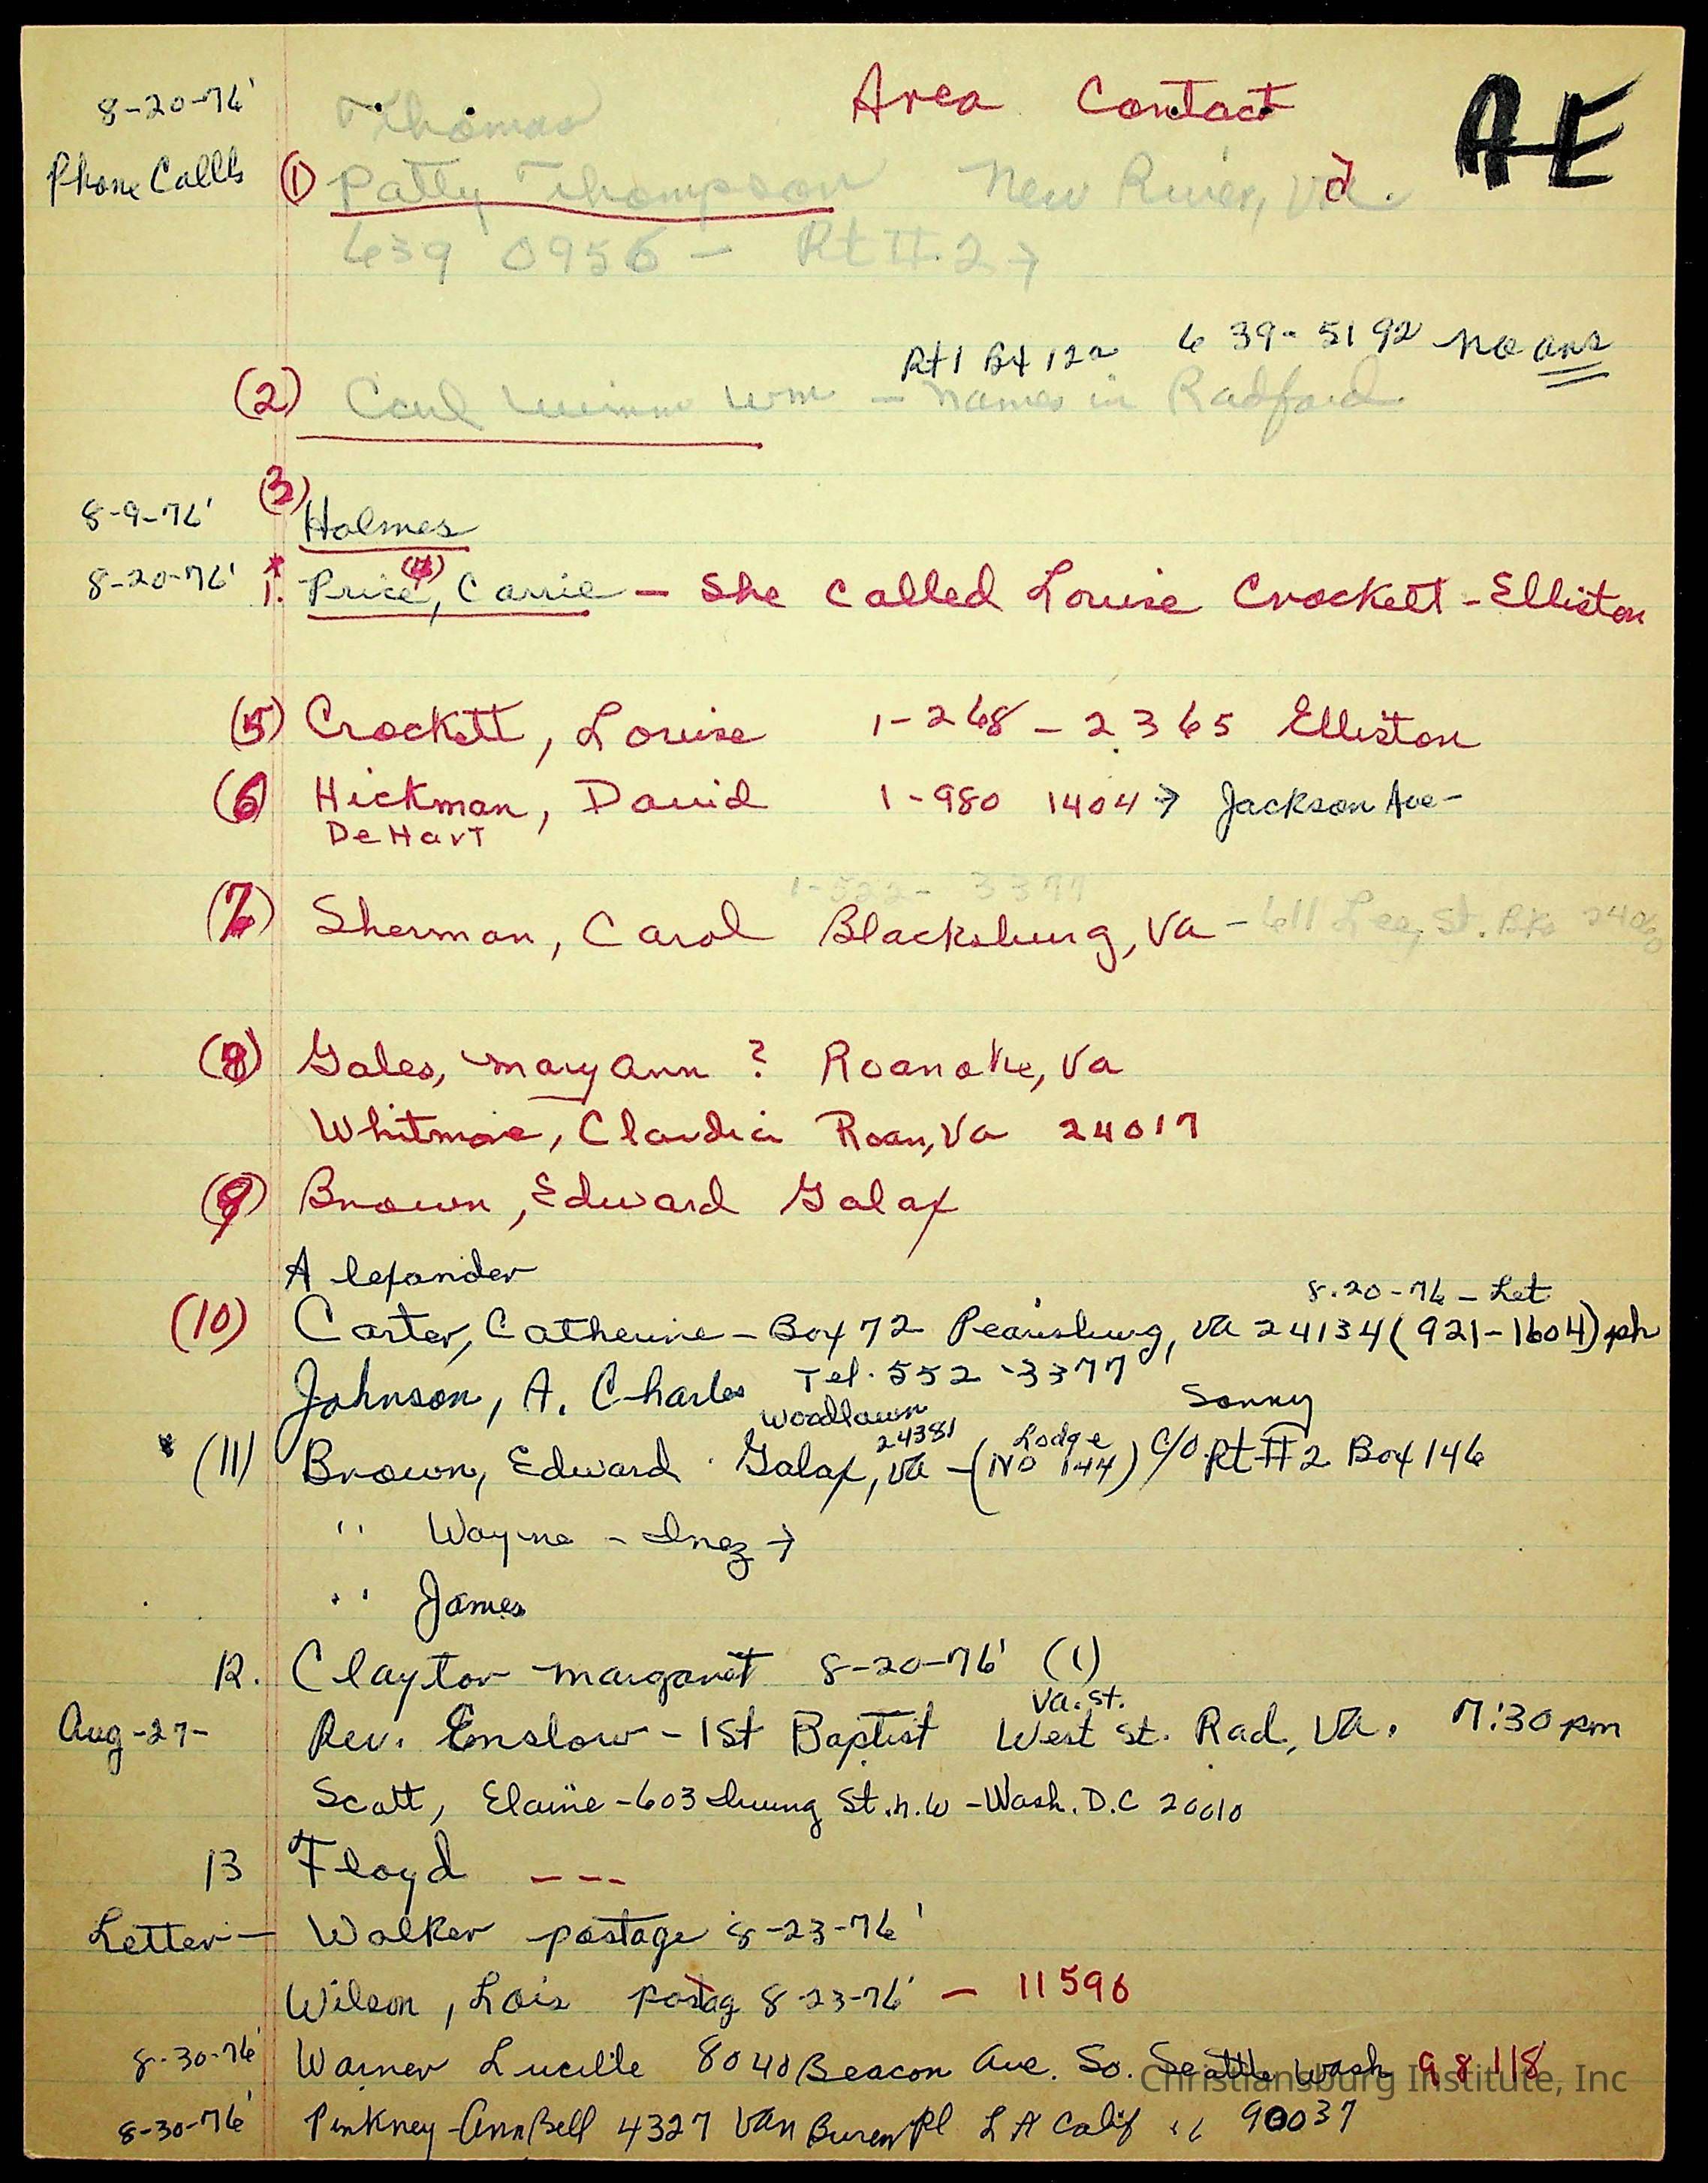 8-20-76' Area Contact AE
Thomas
Phone Callls (1) Patty Thompson New River, Va.
639 0956 - Rt #2 →
Rt 1 Bx 122 639-5192 no ans
(2) Carl Wm - names in Radford
(3)
8-9-76' Holmes
8-20-76' *1. Price, (4) Carrie - She called Louise Crockett - Elliston
(5) Crockett, Louise 1-268-2365 Elliston
(6) Hickman, David 1-980 1404 → Jackson Ave-
DeHart
1-522-3377
(7) Sherman, Carol Blacksburg, Va - 611 Lee, St. 24060
(8) Gales, Mary Ann ? Roanoke, Va
Whitmore, Claudia Roan, Va 24017
(9) Brown, Edward Galax
Alexander
8-20-76 - Let
(10) Carter, Catherine - Box 72 Pearisburg, Va 24134 (921-1604) ph
Johnson, A. Charles Tel. 552-3377
Woodlawn 24381 Lodge Sonny
* (11) Brown, Edward Galax, Va - (No 144) c/o Rt #2 Box 146
" Wayne - Inez →
" James
12. Claytor Margaret 8-20-76' (1)
Va. St.
Aug-27- Rev. Enslow - 1st Baptist West St. Rad, Va. 7:30 pm
Scott, Elaine - 603 Irving St. N.W - Wash. D.C 20010
13 Floyd ---
Letter - Walker postage 8-23-76'
Wilson, Lois postag 8-23-76' - 11590
8-30-76' Warner Lucille 8040 Beacon Ave. So. Seattle Wash 98118
8-30-76' Pinkney Ann Bell 4327 Van Buren Pl L A Calif " 90037
Christiansburg Institute, Inc